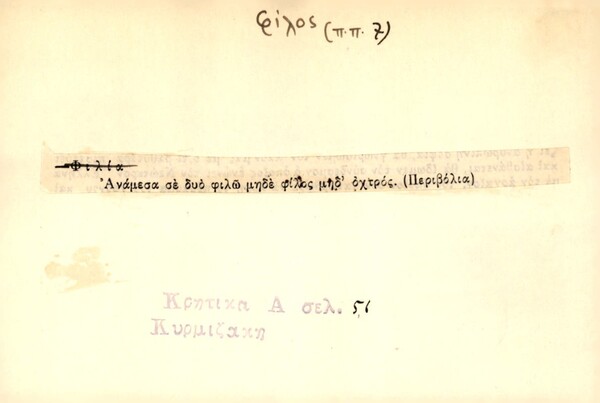 φίλος (π.π. 7)
Φιλία
Ἀνάμεσα σὲ δυὸ φιλῶ μηδὲ φίλος μηδ' ὀχτρός. (Περιβόλια)
Κρητικα Α σελ. 56
Κυρμιζακη